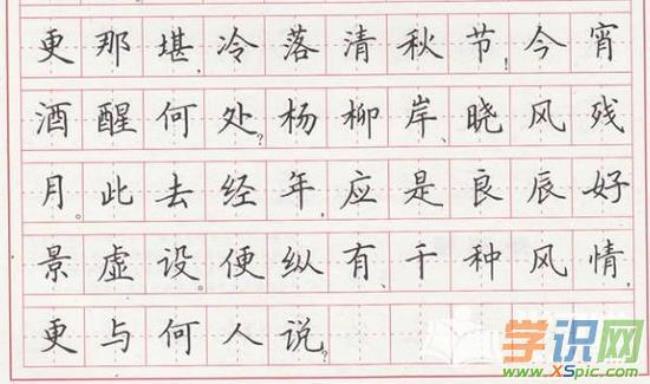 更那堪，冷落清秋节！今宵
酒醒何处？杨柳岸、晓风残
月。此去经年，应是良辰好
景虚设。便纵有、千种风情，
更与何人说？
学识网
www.XSpic.com